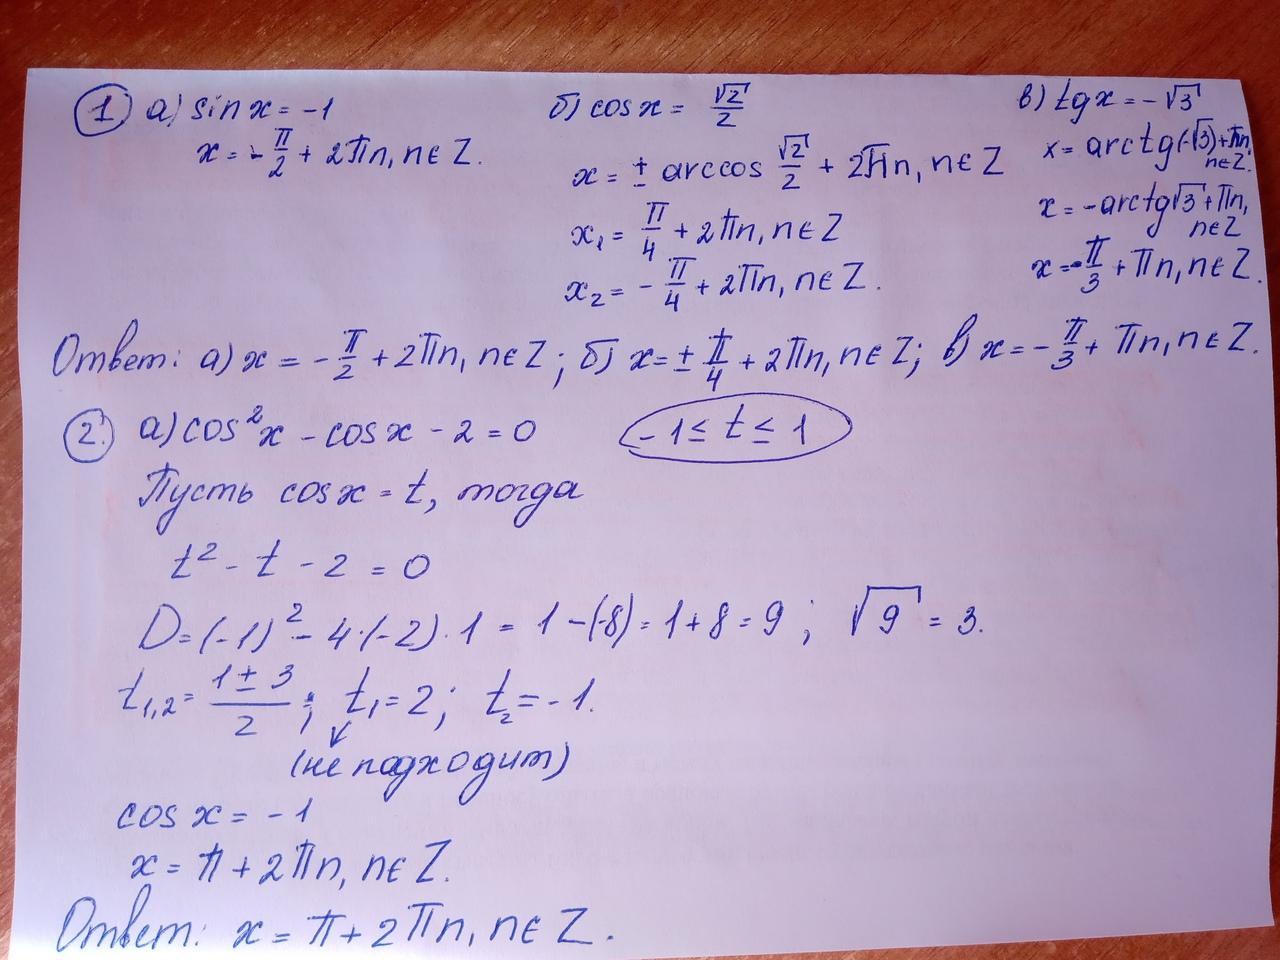 1 а) sin x = -1
x = -π/2 + 2πn, n∈Z.
б) cos x = √2/2
x = ± arccos √2/2 + 2πn, n∈Z
x₁ = π/4 + 2πn, n∈Z
x₂ = -π/4 + 2πn, n∈Z.
в) tg x = -√3
x = arctg(-√3) + πn,
n∈Z.
x = -arctg√3 + πn,
n∈Z
x = -π/3 + πn, n∈Z.
Ответ: а) x = -π/2 + 2πn, n∈Z; б) x = ± π/4 + 2πn, n∈Z; в) x = -π/3 + πn, n∈Z.
2. а) cos²x - cos x - 2 = 0
-1 ≤ t ≤ 1
Пусть cos x = t, тогда
t² - t - 2 = 0
D = (-1)² - 4·(-2)·1 = 1 - (-8) = 1 + 8 = 9; √9 = 3.
t₁,₂ = (1 ± 3)/2; t₁ = 2; t₂ = -1.
(не подходит)
cos x = -1
x = π + 2πn, n∈Z.
Ответ: x = π + 2πn, n∈Z.